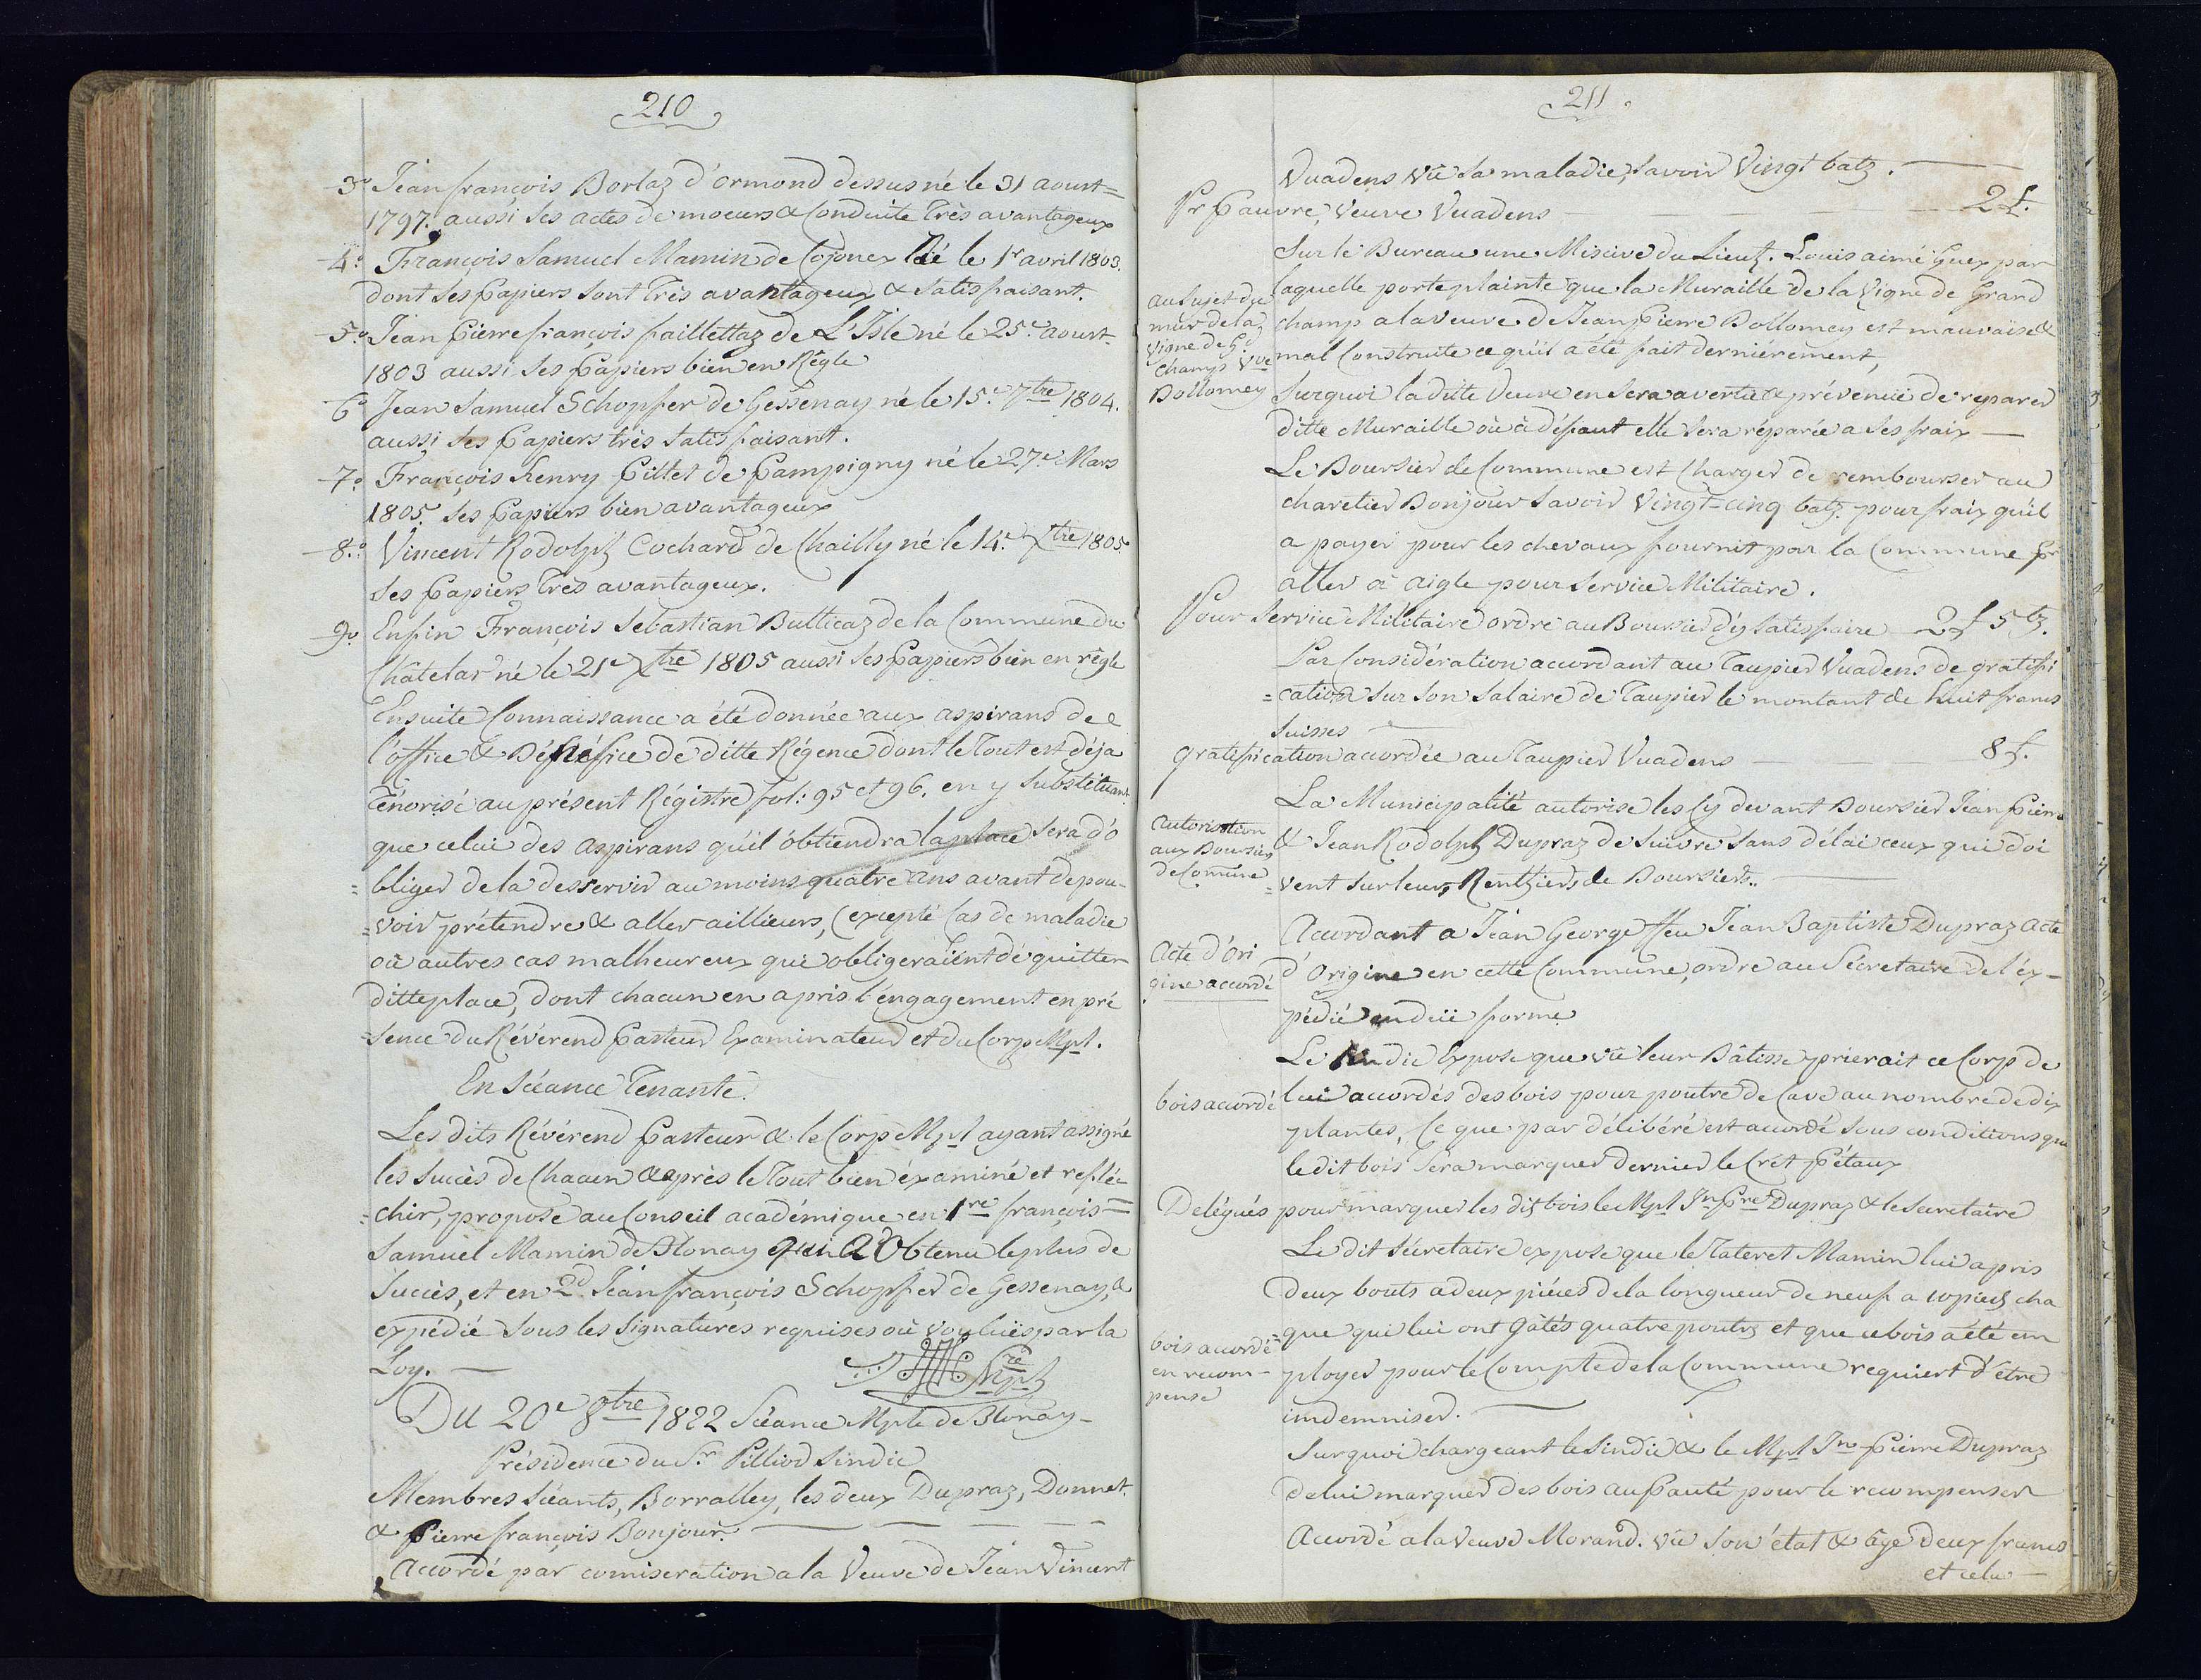 210
3.o Jean françois Borlaz d'ormond dessus né le 31 aoust=
1797. aussi ses actes de moeurs & Conduite Très avantageux
4.o François Samuel Mamin de Cojonex Né le 1r avril 1803.
dont ses Papiers sont Très avantageux & Satisfaisant.
5.o Jean Pierre françois faillettaz de L'Isle né le 25.e aoust
1803 aussi ses Papiers bien en Règle
6.o Jean Samuel Schopfer de Gessenay né le 15.e 7tre 1804.
aussi ses Papiers très satisfaisant.
7.o François henry Pittet de Pampigny né le 27.e Mars
1805. ses Papiers bien avantageux
8.o Vincent Rodolph Cochard de Chailly né le 14.e Xtre 1805
ses Papiers Très avantageux.
9.o Enfin François Sebastian Bulticaz de la Commune du
Châtelar né le 21e Xtre 1805 aussi ses Papiers bien en règle
Ensuite Connaissance a été donnée aux aspirans de
l'office & Bénéfice de ditte Régence dont le Tout est déja
Ténorisé au présent Régistre fol: 95 et 96. en y substituant
que celui des aspirans qu'il obtiendra la place sera d'o
=bliger de la desservir au moins quatre ans avant de pou-
=voir prétendre & aller aillieurs, (excepté Cas de maladie
ou autres cas malheureux qui obligeraient de quitter
ditte place, dont chacun en a pris l'éngagement en pré
=sence du Révérend Pasteur Examinateur et du Corps Mpl.
En Séance Tenante.
Les dits Révérend Pasteur & le Corp Mpl ayant assigné
les succès de Chacun & après le Tout bien éxaminé et réflé-
=chir, propose au Conseil académique en 1re françois=
Samuel Mamin de Blonay qui a Obtenu le plus de
Succès, et en 2d Jean françois Schopfer de Gessenay, &
expédié sous les signatures requises où voulües par la
Loy. —
Du 20e 8tre 1822 Séance Mple de Blonay-
Présidence du Sr Pilliod Sindic
Membres Séants, Borralley, les deux Dupraz, Donnet.
& Pierre françois Bonjour.
Accordé par comiseration a la Veuve de Jean Vincent
211.
Vuadens vû sa maladie, savoir Vingt batz.
Pr Pauvre, Veuve Vuadens 2 f.
Sur le Bureau une Misive du Lieut. Louis aimé Guex par
laquelle porte plainte que la Muraille de la Vigne de Grand
champ a la veuve de Jean Pierre Bollomey est mauvaise &
mal Construite ce qu'il a été fait derniérement,
au Sujet du
mur de la
Vigne de Gd
Champ Vve
Bollomey
Surquoi la ditte Veuve en sera avertie & prévenüe de reparer
ditte Muraille où à défaut elle sera réparée a ses fraix —
Le Boursier de Commune est Charger de rembourser au
charetier Bonjour savoir Vingt-cinq batz. pour fraix qu'il
a payer pour les chevaux fournit par la Commune pr
aller à aigle pour service Militaire.
Pour Service Militaire ordre au Boursier d'y satisfaire 2 f 5 bz.
Par Considération accordant au Taupier Vuadens de gratifi
=cation sur son salaire de Taupier le montant de huit francs
suisses
gratification accordée au Taupier Vuadens 8 f.
La Municipalité autorise les Cy devant Boursier Jean Pierre
& Jean Rodolph Dupraz de suivre sans délai ceux qui doi
=vent sur leurs Rentziers de Boursiers.
autorisation
aux Boursier
de Comune
Accordant a Jean George ffeu Jean Baptiste Dupraz acte
d'Origine en cette Commune, ordre au Sécretaire de l'éx-
pédié en düe forme
acte d'Ori
gine accordé
Le Sindic Expose que vû leur Bâtisse prierait ce Corp de
lui accordés des bois pour poutre de Cave au nombre de dix
plantes, Ce que par délibéré est accordé sous conditions que
le dit bois sera marquer dernier le Cret Pétaux
bois accordé
Delégués pour marquer les dit bois le Mpl Jn Pre Dupraz & le secretaire
Le dit sécretaire expose que le Tateret Mamin lui a pris
deux bouts a deux piéces de la longueur de neuf a 10 pieds cha
=que qui lui ont gâtés quatre poutres et que ce bois a été em
ployer pour le Compte de la Commune requiert d'être
imdemniser.
bois accordé
en recom-
pense
Surquoi chargeant le Sindic & le Mpl Jn Pierre Dupraz
de lui marquer des bois au Pauté pour le recompenser
Accordé a la Veuve Morand. vû son état & âge deux francs
et celu